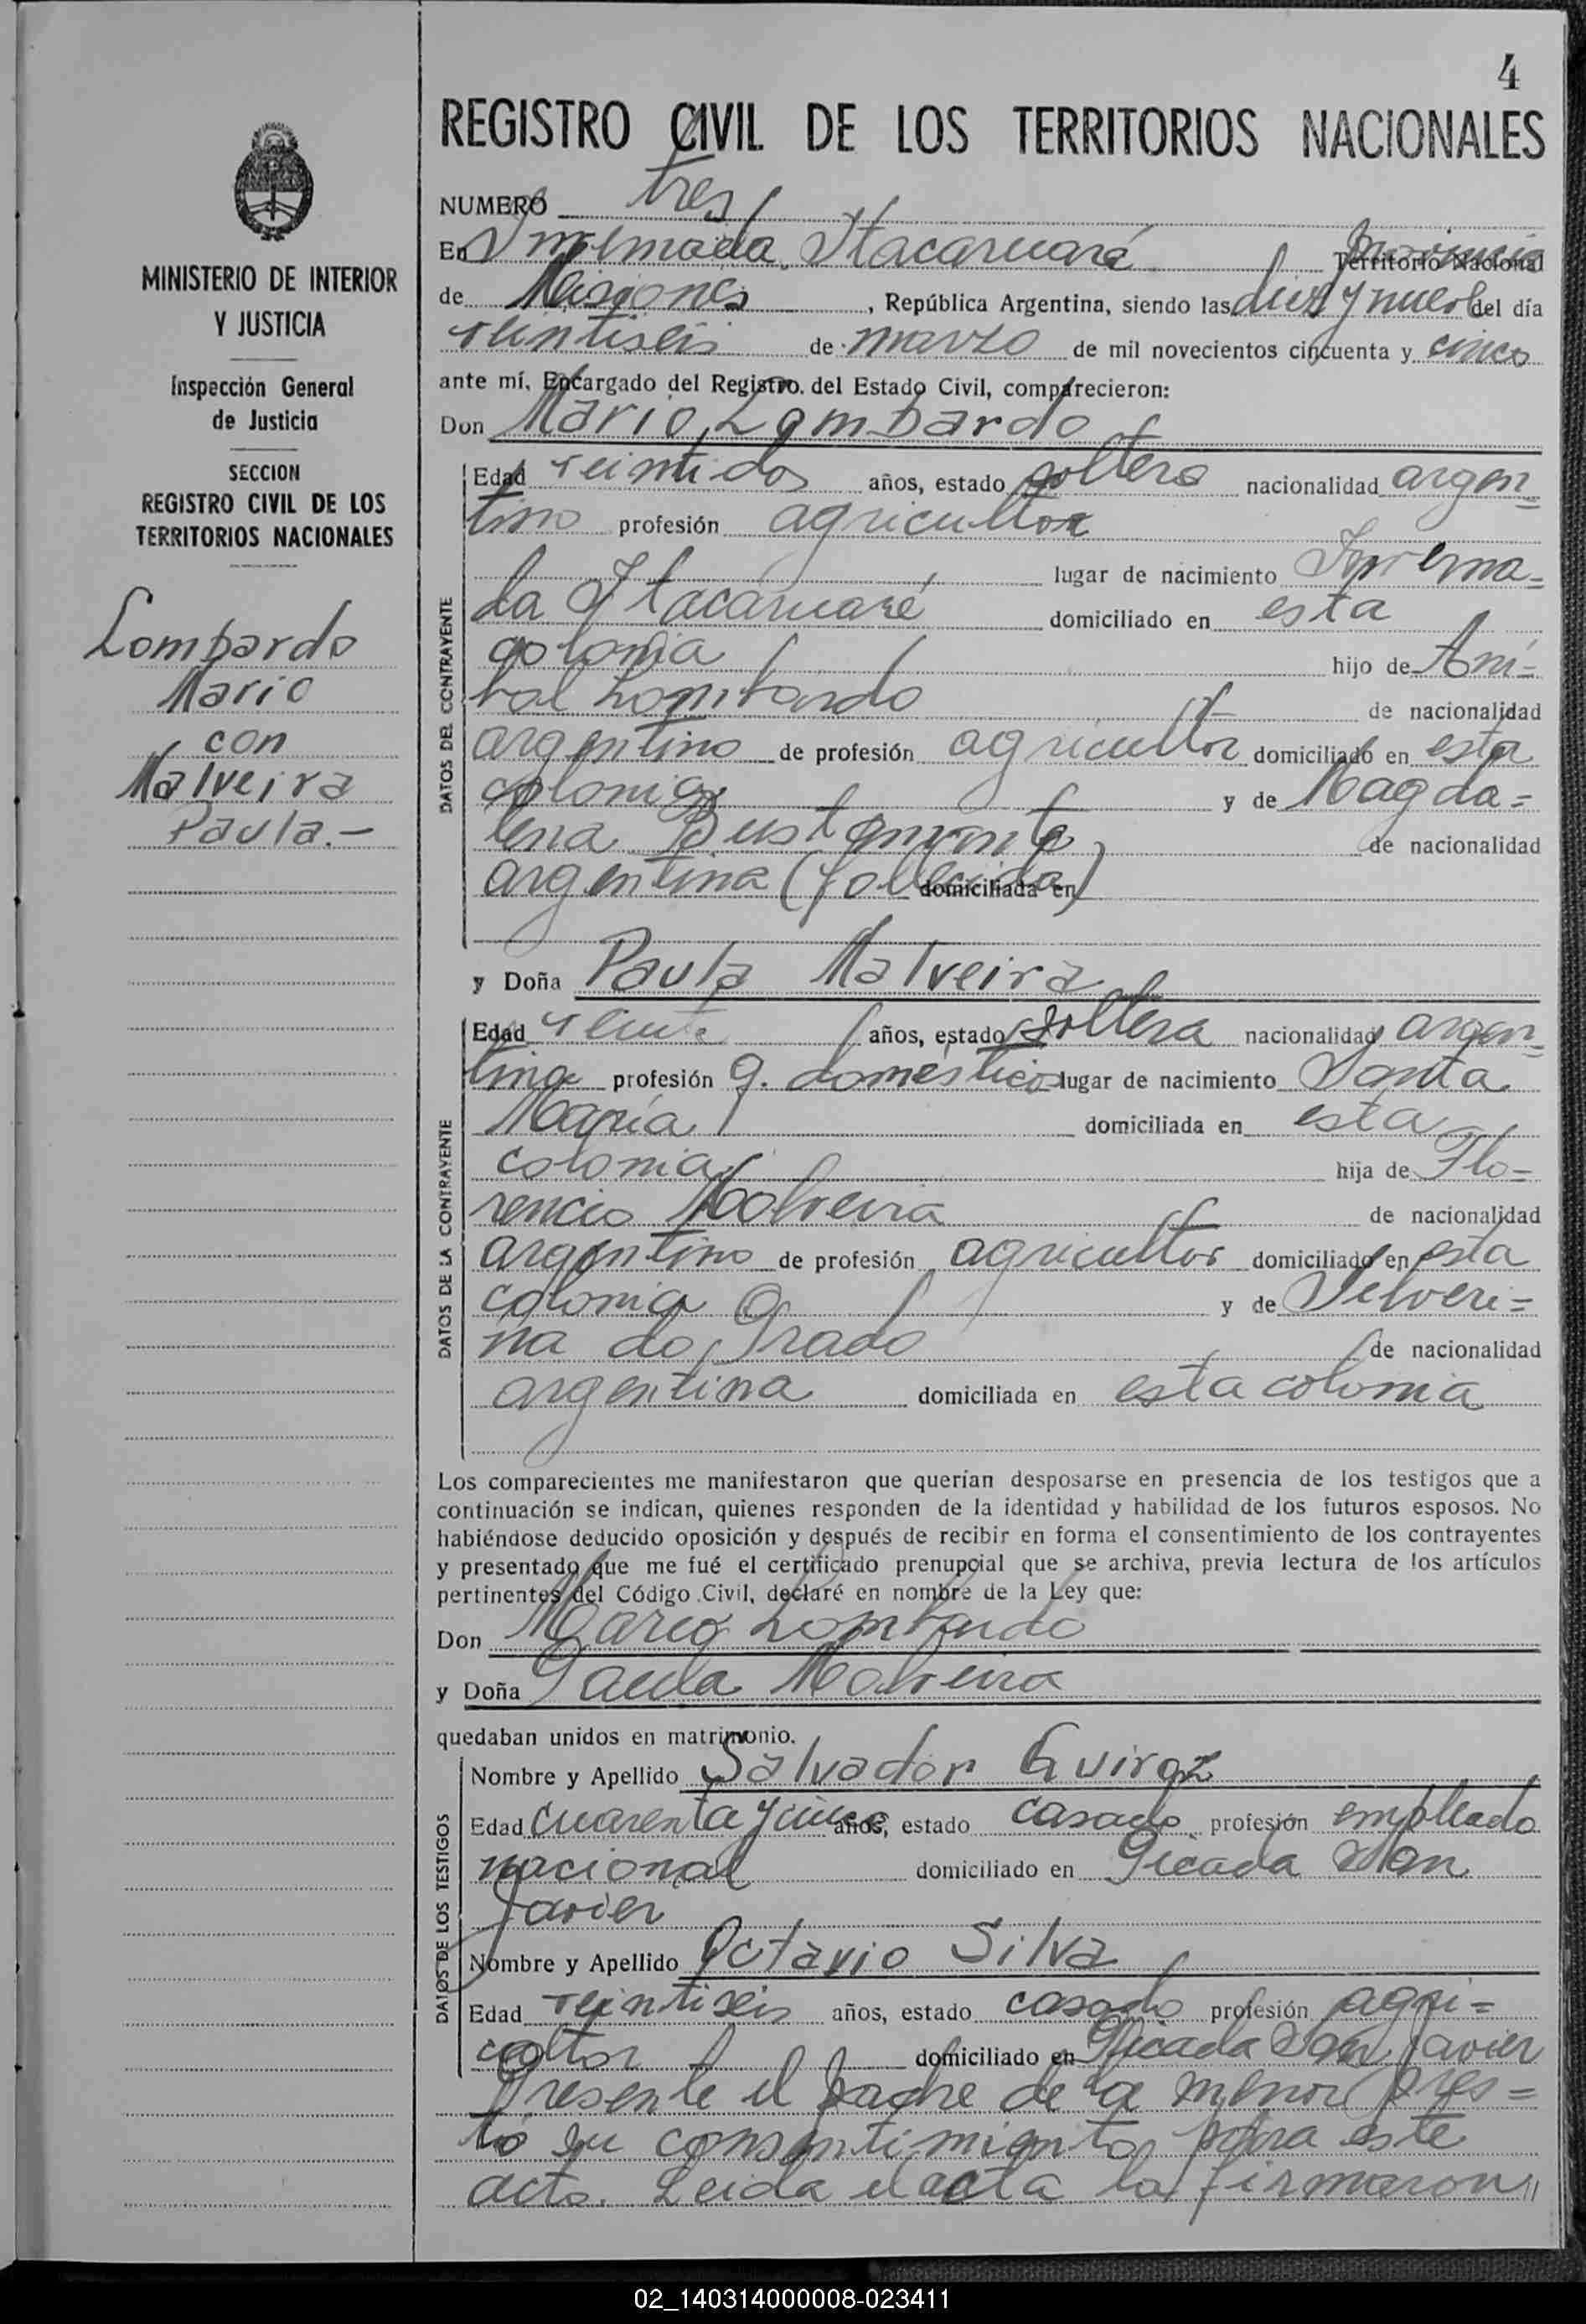 4
REGISTRO CIVIL DE LOS TERRITORIOS NACIONALES
MINISTERIO DE INTERIOR
Y JUSTICIA
Inspección General
de Justicia
SECCION
REGISTRO CIVIL DE LOS
TERRITORIOS NACIONALES
Lombardo
Mario
con
Malveira
Paula.-
NUMERO tres
En Invernada Itacaruaré Provincia Territorio Nacional
de Misiones, República Argentina, siendo las diez y nueve del día
veintiseis de marzo de mil novecientos cincuenta y cinco
ante mí, Encargado del Registro del Estado Civil, comparecieron:
Don Mario Lombardo
DATOS DEL CONTRAYENTE
Edad veintidos años, estado soltero nacionalidad argen=
tino profesión agricultor
lugar de nacimiento Inverna=
da Itacaruaré domiciliado en esta
colonia hijo de Aní=
bal Lombardo de nacionalidad
argentino de profesión agricultor domiciliado en esta
colonia y de Magda=
lena Bustamante de nacionalidad
argentina (fallecida) domiciliada en
y Doña Paula Malveira
DATOS DE LA CONTRAYENTE
Edad veinte años, estado soltera nacionalidad argen=
tina profesión q. domésticos lugar de nacimiento Santa
María domiciliada en esta
colonia hija de Flo=
rencio Malveira de nacionalidad
argentino de profesión agricultor domiciliado en esta
colonia y de Silveri=
na do Prado de nacionalidad
argentina domiciliada en esta colonia
Los comparecientes me manifestaron que querían desposarse en presencia de los testigos que a
continuación se indican, quienes responden de la identidad y habilidad de los futuros esposos. No
habiéndose deducido oposición y después de recibir en forma el consentimiento de los contrayentes
y presentado que me fué el certificado prenupcial que se archiva, previa lectura de los artículos
pertinentes del Código Civil, declaré en nombre de la Ley que:
Don Mario Lombardo
y Doña Paula Malveira
quedaban unidos en matrimonio.
DATOS DE LOS TESTIGOS
Nombre y Apellido Salvador Quiroz
Edad cuarenta y cinco años, estado casado profesión empleado
nacional domiciliado en Picada San
Javier
Nombre y Apellido Octavio Silva
Edad veintiseis años, estado casado profesión agri=
cultor domiciliado en Picada San Javier
Presente el padre de la menor pres=
tó su consentimiento para este
acto. Leida el acta la firmaron
02_140314000008-023411